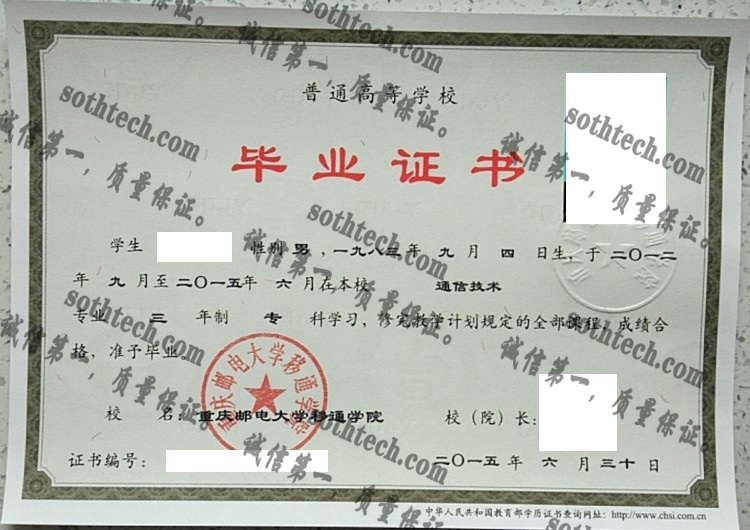 普通高等学校
毕业证书
学生 性别 男，一九八三年 九 月 四 日生，于 二〇一二
年 九 月至 二〇一五年 六 月在本校 通信技术
专业 三 年制 专 科学习，修完教学计划规定的全部课程，成绩合
格，准予毕业。
校 名：重庆邮电大学移通学院 校（院）长：
证书编号： 二〇一五 年 六 月 三十 日
中华人民共和国教育部学历证书查询网址：http://www.chsi.com.cn
重庆邮电大学移通学院
sothtech.com
诚信第一，质量保证。
sothtech.com
诚信第一，质量保证。
sothtech.com
诚信第一，质量保证。
sothtech.com
诚信第一，质量保证。
sothtech.com
诚信第一，质量保证。
sothtech.com
诚信第一，质量保证。
sothtech.com
诚信第一，质量保证。